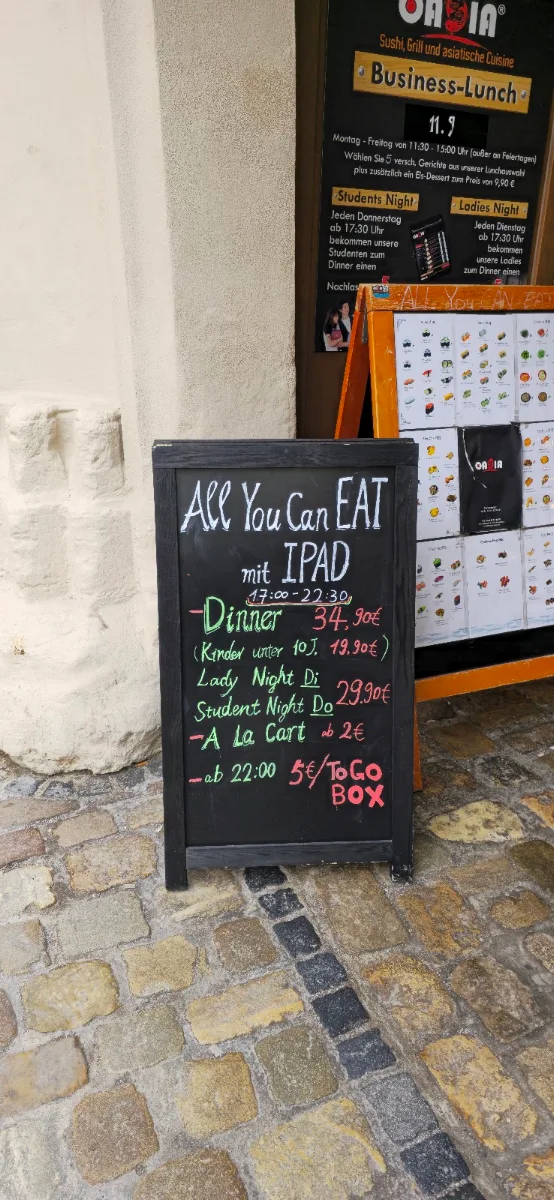 OASIA®
Sushi, Grill und asiatische Cuisine
Business-Lunch
11.9
Montag - Freitag von 11:30 - 15:00 Uhr (außer an Feiertagen)
Wählen Sie 5 versch. Gerichte aus unserer Lunchauswahl
plus zusätzlich ein Eis-Dessert zum Preis von 9,90 €
Students Night
Jeden Donnerstag
ab 17:30 Uhr
bekommen unsere
Studenten zum
Dinner einen
Nachlass
Ladies Night
Jeden Dienstag
ab 17:30 Uhr
bekommen
unsere Ladies
zum Dinner einen
ALL YOU CAN EAT
OASIA
All You Can EAT
mit IPAD
17:00 - 22:30
- Dinner 34,90€
(Kinder unter 10 J. 19.90€)
Lady Night Di
Student Night Do 29.90€
- A La Cart ab 2€
- ab 22:00 5€/ToGO
BOX